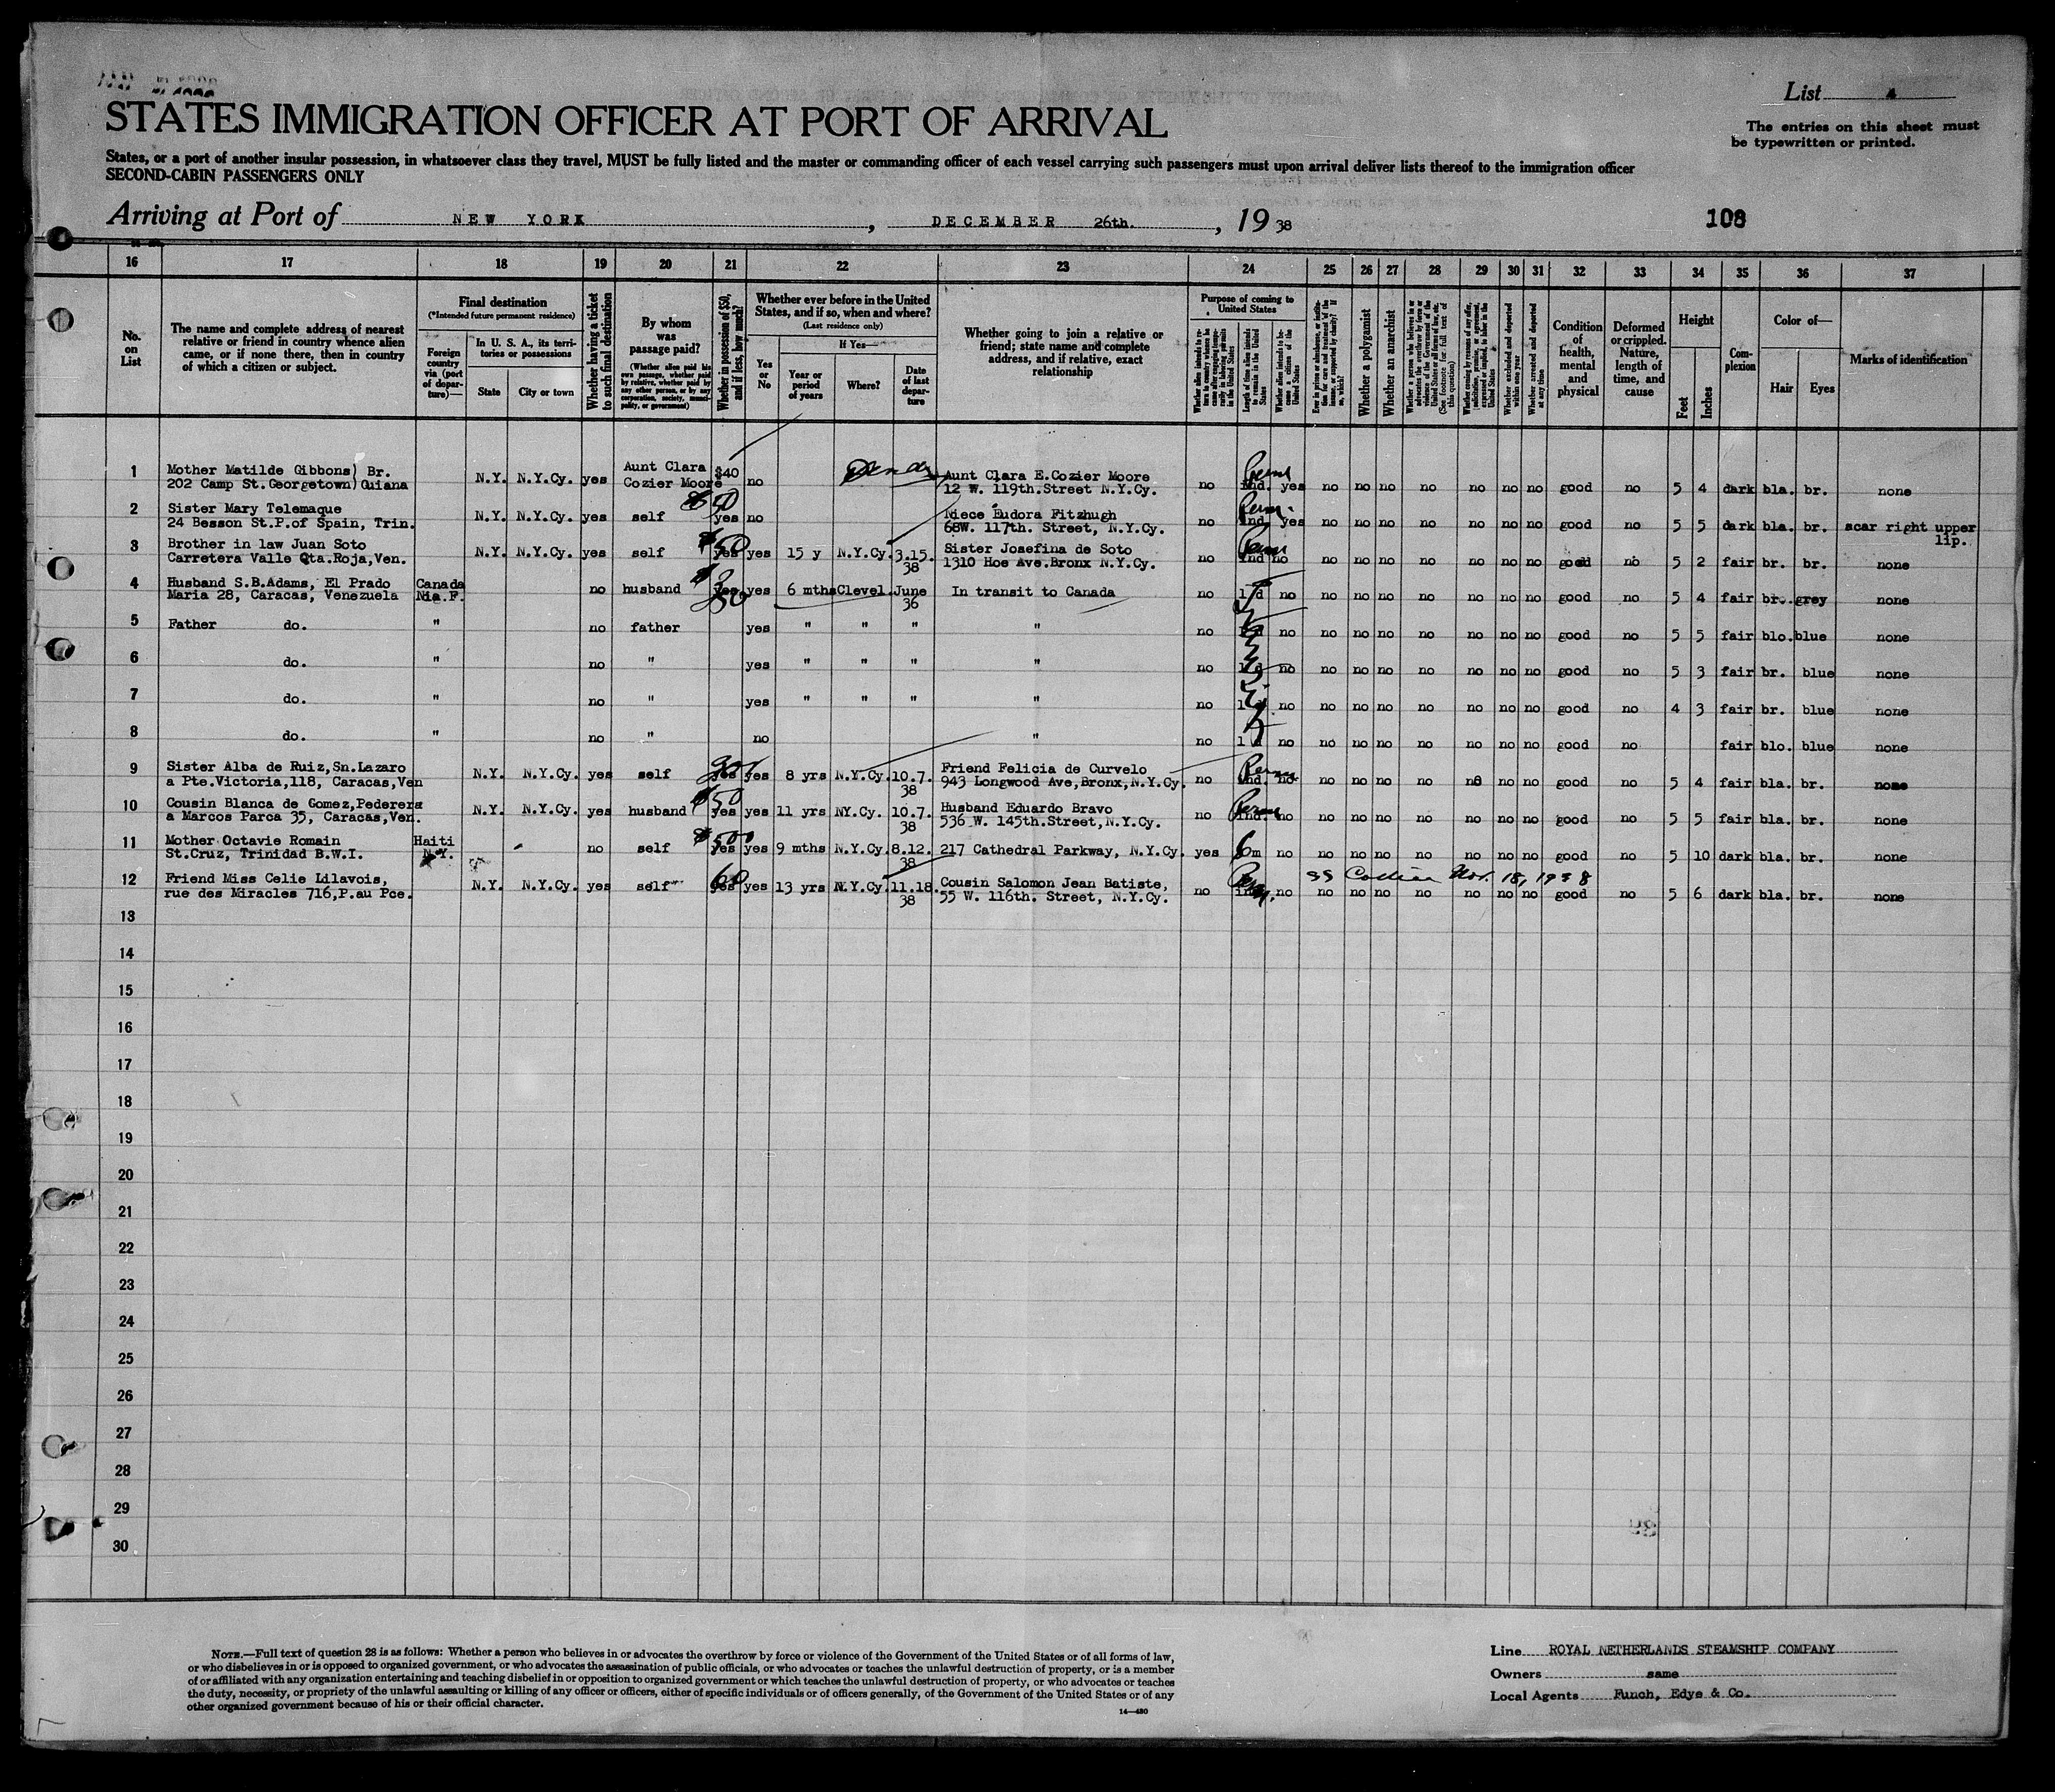 List 4
STATES IMMIGRATION OFFICER AT PORT OF ARRIVAL
The entries on this sheet must
be typewritten or printed.
States, or a port of another insular possession, in whatsoever class they travel, MUST be fully listed and the master or commanding officer of each vessel carrying such passengers must upon arrival deliver lists thereof to the immigration officer
SECOND-CABIN PASSENGERS ONLY
Arriving at Port of NEW YORK, DECEMBER 26th., 1938
108
16 17 18 19 20 21 22 23 24 25 26 27 28 29 30 31 32 33 34 35 36 37
No. on List
The name and complete address of nearest relative or friend in country whence alien came, or if none there, then in country of which a citizen or subject.
Final destination
(*Intended future permanent residence)
Foreign country via (port of departure)—
In U. S. A., its territories or possessions
State City or town
Whether having a ticket to such final destination
By whom was passage paid?
(Whether alien paid his own passage, whether paid by relative, whether paid by any other person, or by any corporation, society, municipality, or government)
Whether in possession of $50, and if less, how much?
Whether ever before in the United States, and if so, when and where?
(Last residence only)
Yes or No
If Yes—
Year or period of years
Where?
Date of last departure
Whether going to join a relative or friend; state name and complete address, and if relative, exact relationship
Purpose of coming to United States
Length of time alien intends to remain in the United States
Whether alien intends to become a citizen of the United States
Whether a polygamist
Whether an anarchist
Whether excluded and deported within one year
Whether arrested and deported at any time
Condition of health, mental and physical
Deformed or crippled. Nature, length of time, and cause
Height
Feet Inches
Complexion
Color of—
Hair Eyes
Marks of identification
1 Mother Matilde Gibbons) Br. Aunt Clara $40 Aunt Clara E.Cozier Moore Perm
202 Camp St.Georgetown) Guiana N.Y. N.Y.Cy. yes Cozier Moore no 12 W. 119th.Street N.Y.Cy. no ind. yes no no no no no no no good no 5 4 dark bla. br. none
2 Sister Mary Telemaque $50 Niece Eudora Fitzhugh Perm.
24 Besson St.P.of Spain, Trin. N.Y. N.Y.Cy. yes self yes no 68W. 117th. Street, N.Y.Cy. no ind yes no no no no no no no good no 5 5 dark bla. br. scar right upper lip.
3 Brother in law Juan Soto $50 Sister Josefina de Soto Perm
Carretera Valle Qta.Roja,Ven. N.Y. N.Y.Cy. yes self yes yes 15 y N.Y.Cy. 3.15.38 1310 Hoe Ave.Bronx N.Y.Cy. no ind no no no no no no no no good no 5 2 fair br. br. none
4 Husband S.B.Adams, El Prado Canada
Maria 28, Caracas, Venezuela Nia.F. no husband yes yes 6 mths Clevel. June 36 In transit to Canada no 1 d no no no no no no no no good no 5 4 fair br. grey none
5 Father do. " no father yes " " " " no no no no no no no no no good no 5 5 fair blo. blue none
6 do. " no " yes " " " " no 1 d no no no no no no no no good no 5 3 fair br. blue none
7 do. " no " yes " " " " no 1 d no no no no no no no no good no 4 3 fair br. blue none
8 do. " no " no " no 1 d no no no no no no no no good no fair blo. blue none
9 Sister Alba de Ruiz,Sn.Lazaro Friend Felicia de Curvelo Perm
a Pte.Victoria,118, Caracas,Ven N.Y. N.Y.Cy. yes self yes yes 8 yrs N.Y.Cy. 10.7.38 943 Longwood Ave,Bronx,N.Y.Cy. no ind. no no no no no no no no good no 5 4 fair bla. br. none
10 Cousin Blanca de Gomez,Pederera $50 Husband Eduardo Bravo Perm
a Marcos Parca 35, Caracas,Ven. N.Y. N.Y.Cy. yes husband yes yes 11 yrs NY.Cy. 10.7.38 536 W. 145th.Street,N.Y.Cy. no ind. no no no no no no no no good no 5 5 fair bla. br. none
11 Mother Octavie Romain Haiti $500
St.Cruz, Trinidad B.W.I. N.Y. no self yes yes 9 mths N.Y.Cy. 8.12.38 217 Cathedral Parkway, N.Y.Cy. yes 6m no no no no no no no no good no 5 10 dark bla. br. none
12 Friend Miss Celie Lilavois, 60 Cousin Salomon Jean Batiste, SS Nov. 18, 1938
rue des Miracles 716,P.au Pce. N.Y. N.Y.Cy. yes self yes yes 13 yrs N.Y.Cy. 11.18.38 55 W. 116th. Street, N.Y.Cy. no ind. no no no no no no no no good no 5 6 dark bla. br. none
13
14
15
16
17
18
19
20
21
22
23
24
25
26
27
28
29
30
NOTE.—Full text of question 28 is as follows: Whether a person who believes in or advocates the overthrow by force or violence of the Government of the United States or of all forms of law,
or who disbelieves in or is opposed to organized government, or who advocates the assassination of public officials, or who advocates or teaches the unlawful destruction of property, or is a member
of or affiliated with any organization entertaining and teaching disbelief in or opposition to organized government or which teaches the unlawful destruction of property, or who advocates or teaches
the duty, necessity, or propriety of the unlawful assaulting or killing of any officer or officers, either of specific individuals or of officers generally, of the Government of the United States or of any
other organized government because of his or their official character.
14—480
Line ROYAL NETHERLANDS STEAMSHIP COMPANY
Owners same
Local Agents Funch, Edye & Co.